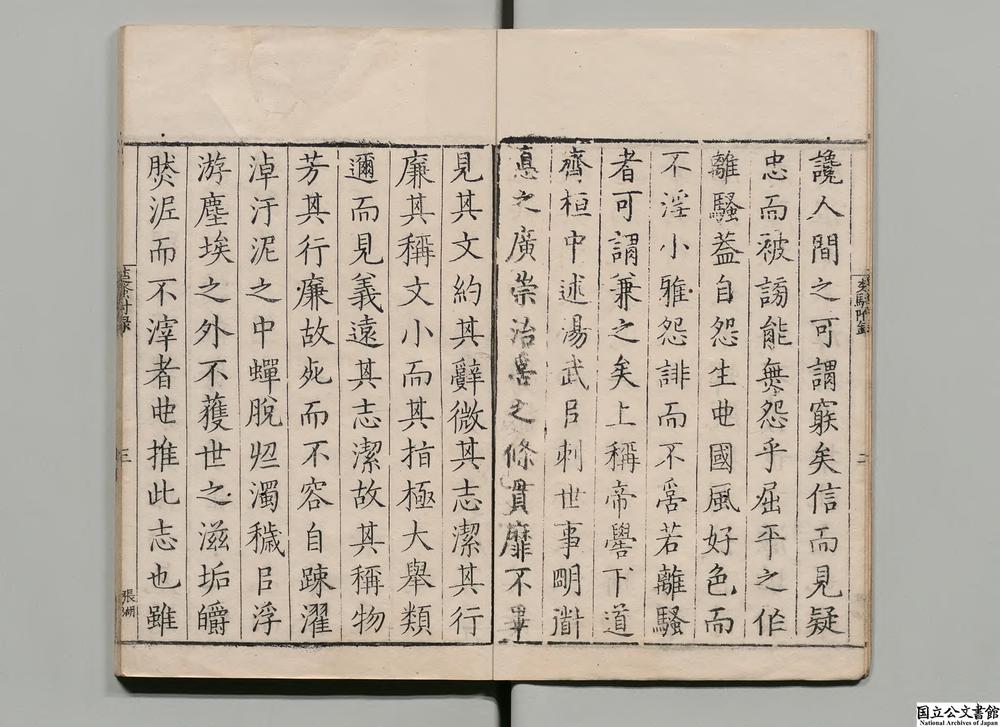 讒人間之可謂窮矣信而見疑
忠而被謗能無怨乎屈平之作
離騷蓋自怨生也國風好色而
不淫小雅怨誹而不亂若離騷
者可謂兼之矣上稱帝嚳下道
齊桓中述湯武㠯刺世事明道
悳之廣崇治亂之條貫靡不畢
見其文約其辭微其志潔其行
廉其稱文小而其指極大舉類
邇而見義遠其志潔故其稱物
芳其行廉故死而不容自踈濯
淖汙泥之中蟬脫於濁穢㠯浮
游塵埃之外不獲世之滋垢皭
然泥而不滓者也推此志也雖
二
三
張湖
国立公文書館
National Archives of Japan